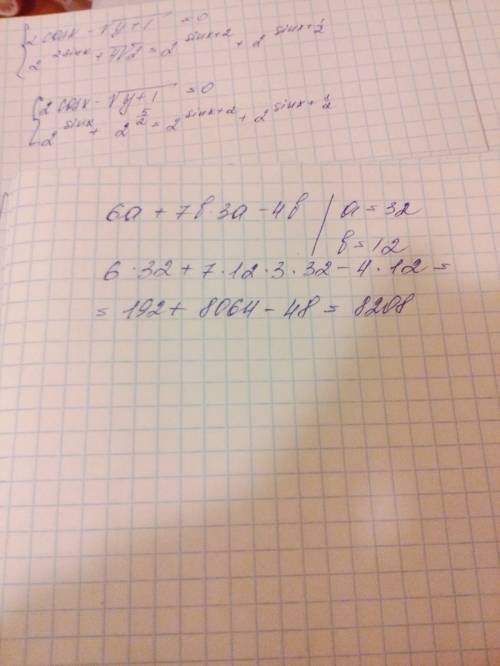 {2 cosx - √y+1 = 0
2^2sinx + 4√2 = 2^sinx+2 + 2^sinx+1/2
{2 cosx - √y+1 = 0
2^sinx + 2^5/2 = 2^sinx+2 + 2^sinx+1/2
6a + 7b·3a - 4b | a = 32
b = 12
6·32 + 7·12·3·32 - 4·12 =
= 192 + 8064 - 48 = 8208